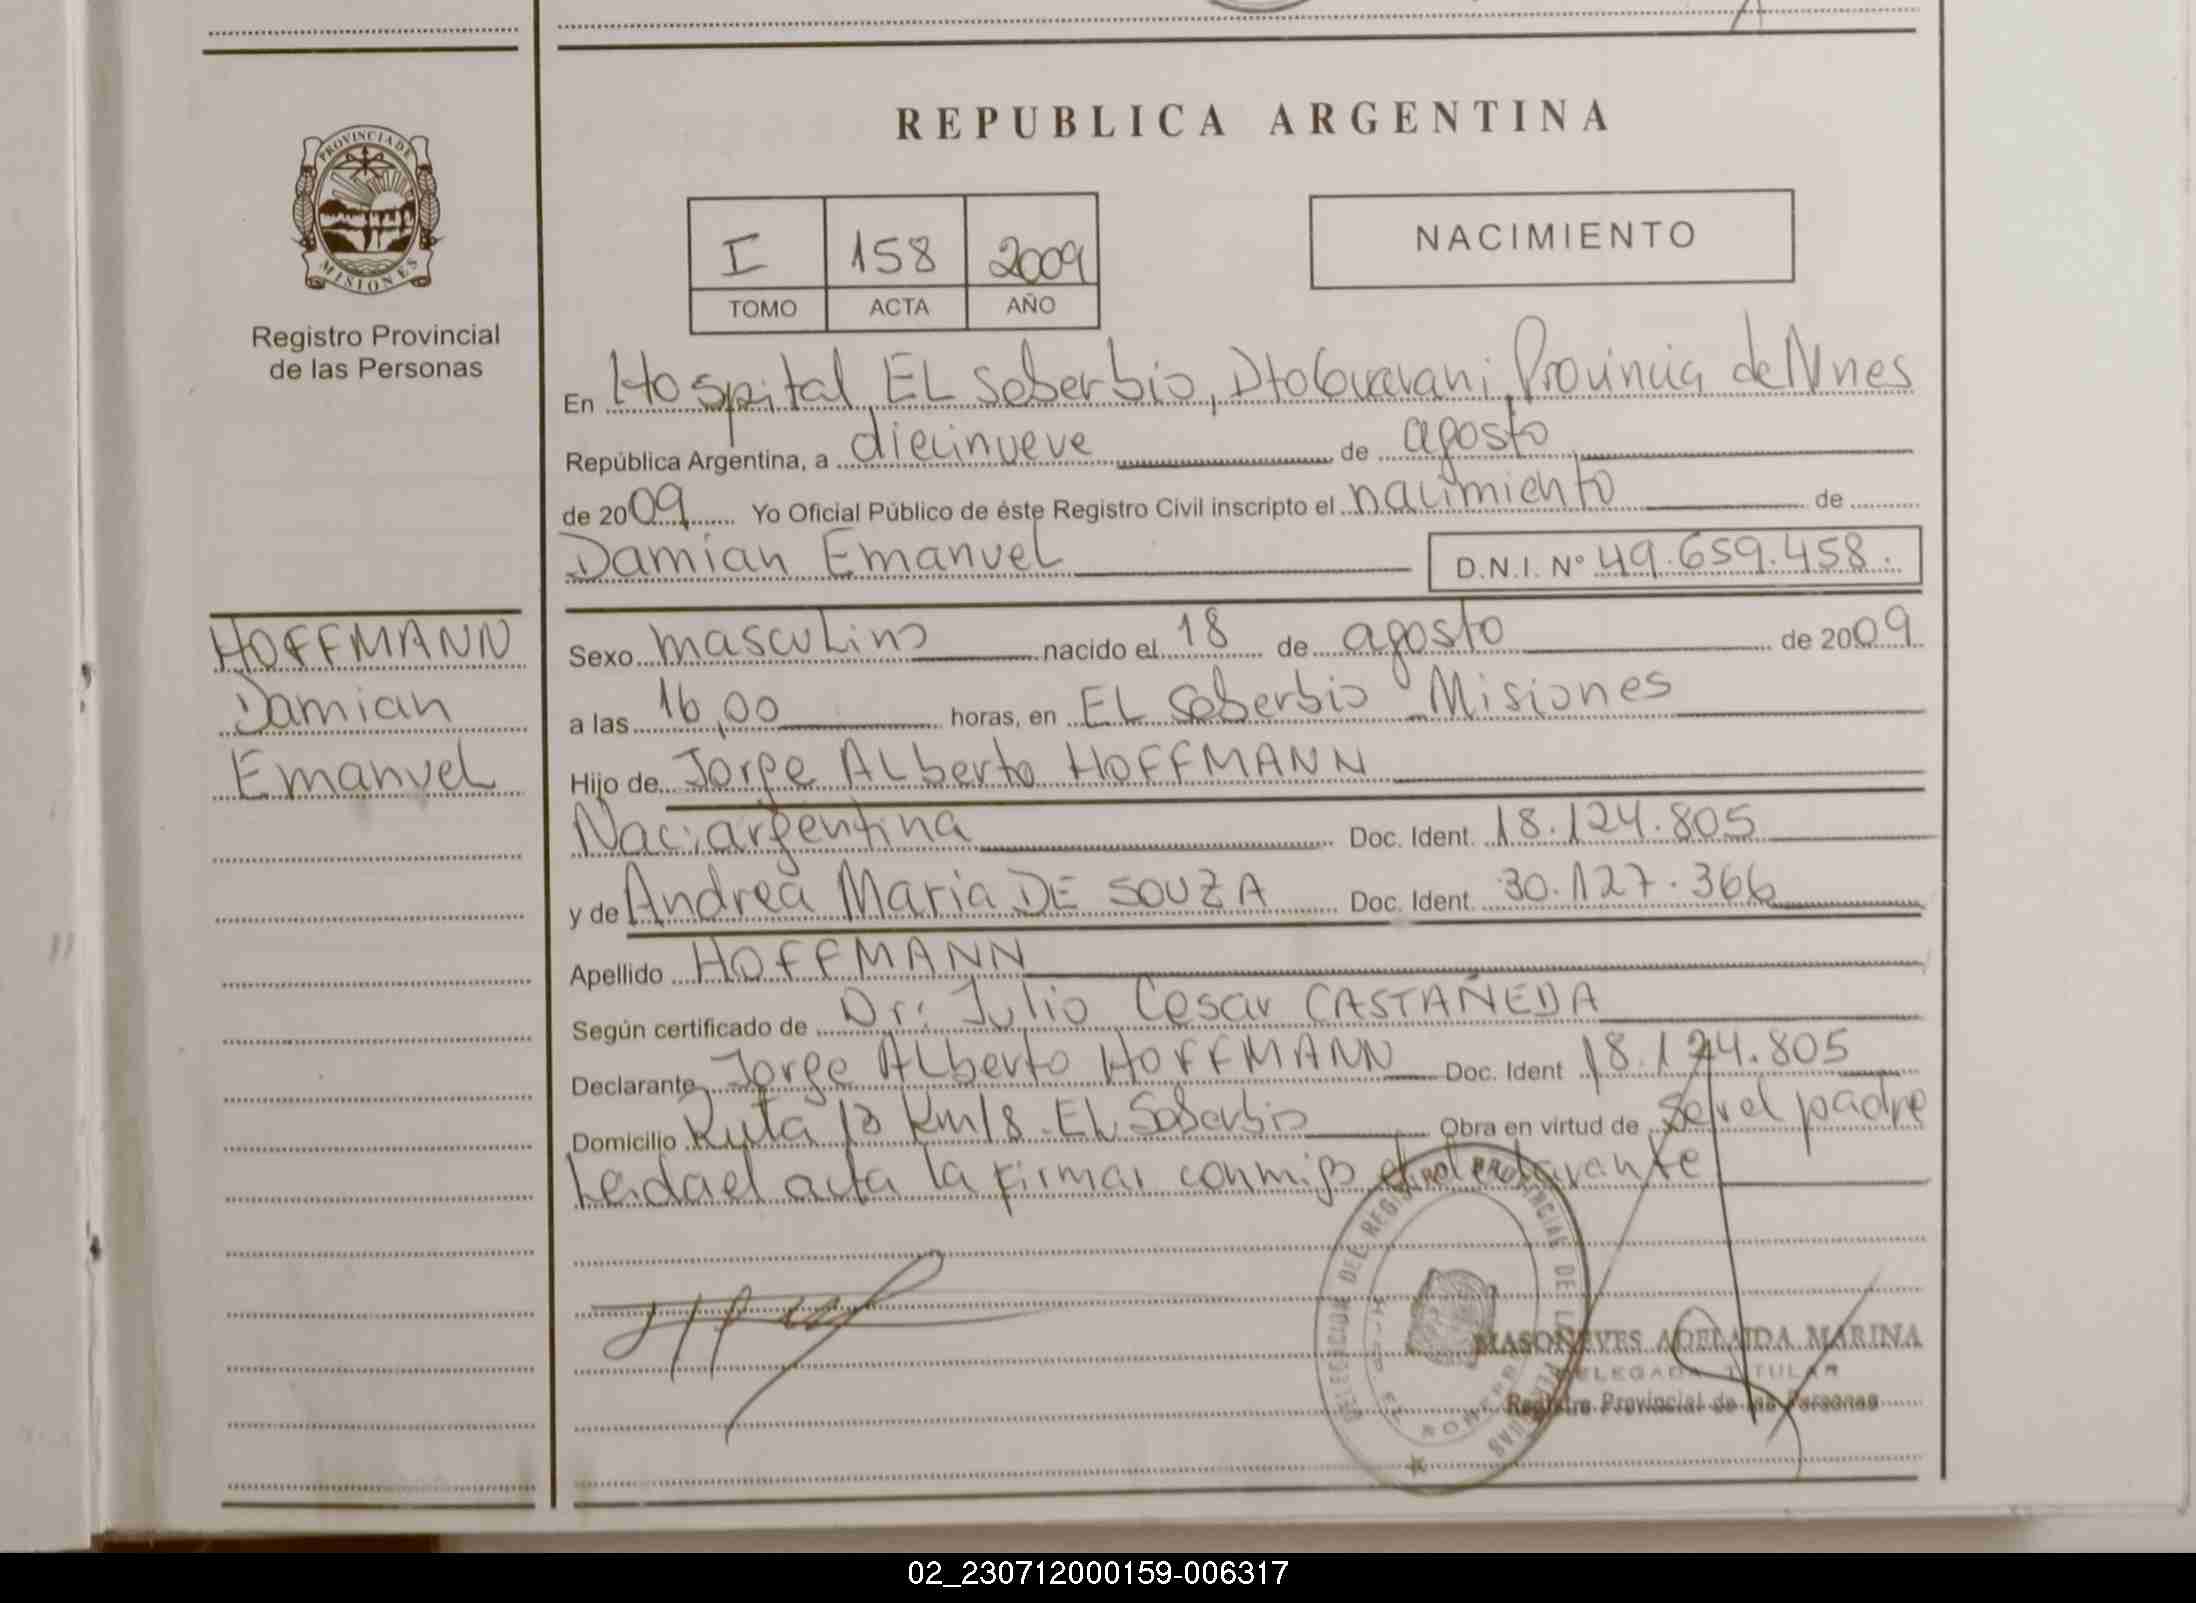 REPUBLICA ARGENTINA
PROVINCIA DE MISIONES
Registro Provincial
de las Personas
I 158 2009
TOMO ACTA AÑO
NACIMIENTO
En Hospital EL Soberbio, Dto Guarani, Provincia de Mnes
República Argentina, a diecinueve de agosto
de 2009 Yo Oficial Público de éste Registro Civil inscripto el nacimiento de
Damian Emanuel D.N.I. Nº 49.659.458.
HOFFMANN
Damian
Emanuel
Sexo masculino nacido el 18 de agosto de 2009
a las 16,00 horas, en EL Soberbio Misiones
Hijo de Jorge Alberto HOFFMANN
Nac: argentina Doc. Ident. 18.124.805
y de Andrea Maria DE SOUZA Doc. Ident. 30.127.366
Apellido HOFFMANN
Según certificado de Dr: Julio Cesar CASTAÑEDA
Declarante Jorge Alberto HOFFMANN Doc. Ident 18.124.805
Domicilio Ruta 13 Km 18. EL Soberbio Obra en virtud de ser el padre
Leida el acta la firmar conmigo el declarante
DELEGACION DEL REGISTRO PROVINCIAL DE LAS PERSONAS
MASONEVES ADELAIDA MARINA
DELEGADA TITULAR
Registro Provincial de las Personas
02_230712000159-006317